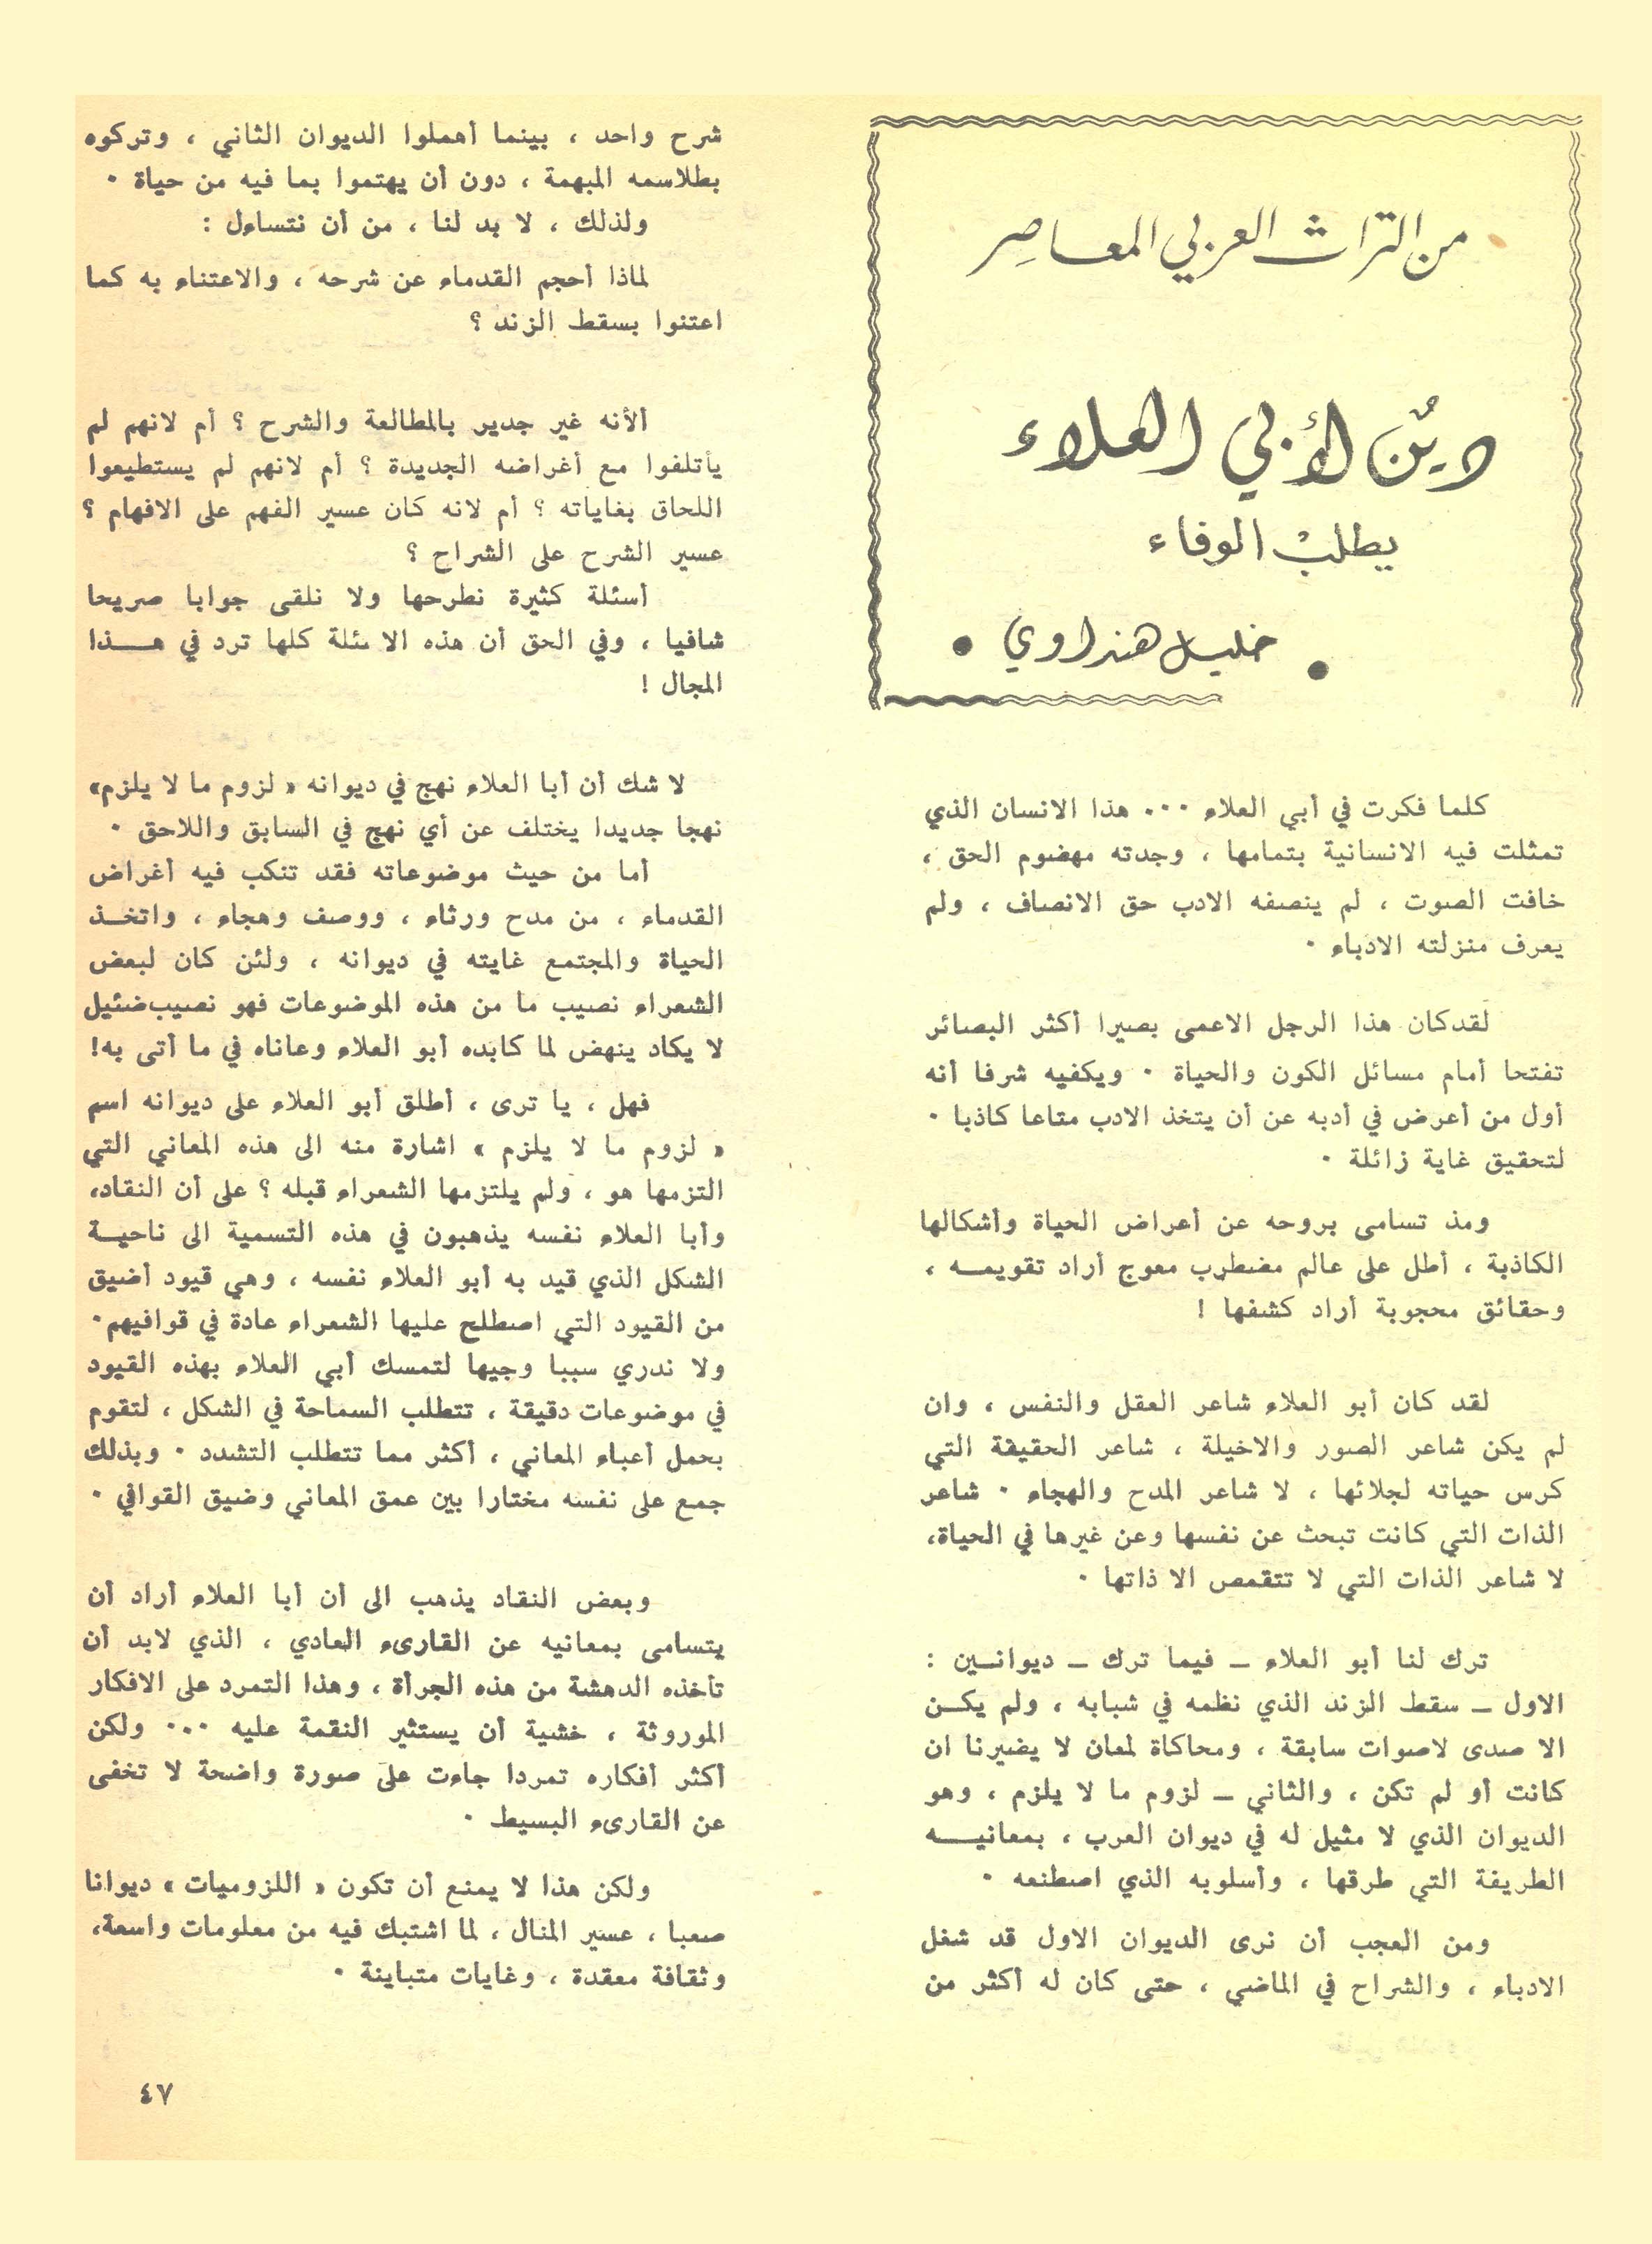 من التراث العربي المعاصر
دين لأبي العلاء
يطلب الوفاء
• خليل هنداوي •
كلما فكرت في أبي العلاء ... هذا الانسان الذي
تمثلت فيه الانسانية بتمامها ، وجدته مهضوم الحق ،
خافت الصوت ، لم ينصفه الادب حق الانصاف ، ولم
يعرف منزلته الادباء .
لقدكان هذا الرجل الاعمى بصيرا أكثر البصائر
تفتحا أمام مسائل الكون والحياة . ويكفيه شرفا أنه
أول من أعرض في أدبه عن أن يتخذ الادب متاعا كاذبا .
لتحقيق غاية زائلة .
ومذ تسامى بروحه عن أعراض الحياة وأشكالها
الكاذبة ، أطل على عالم مضطرب معوج أراد تقويمه ،
وحقائق محجوبة أراد كشفها !
لقد كان أبو العلاء شاعر العقل والنفس ، وان
لم يكن شاعر الصور والاخيلة ، شاعر الحقيقة التي
كرس حياته لجلائها ، لا شاعر المدح والهجاء . شاعر
الذات التي كانت تبحث عن نفسها وعن غيرها في الحياة،
لا شاعر الذات التي لا تتقمص الا ذاتها .
ترك لنا أبو العلاء ــ فيما ترك ــ ديوانين :
الاول ــ سقط الزند الذي نظمه في شبابه ، ولم يكن
الا صدى لاصوات سابقة ، ومحاكاة لمعان لا يضيرنا ان
كانت أو لم تكن ، والثاني ــ لزوم ما لا يلزم ، وهو
الديوان الذي لا مثيل له في ديوان العرب ، بمعانيه
الطريفة التي طرقها ، وأسلوبه الذي اصطنعه .
ومن العجب أن نرى الديوان الاول قد شغل
الادباء ، والشراح في الماضي ، حتى كان له أكثر من
شرح واحد ، بينما أهملوا الديوان الثاني ، وتركوه
بطلاسمه المبهمة ، دون أن يهتموا بما فيه من حياة .
ولذلك ، لا بد لنا ، من أن نتساءل :
لماذا أحجم القدماء عن شرحه ، والاعتناء به كما
اعتنوا بسقط الزند ؟
ألأنه غير جدير بالمطالعة والشرح ؟ أم لانهم لم
يأتلفوا مع أغراضه الجديدة ؟ أم لانهم لم يستطيعوا
اللحاق بغاياته ؟ أم لانه كان عسير الفهم على الافهام ؟
عسير الشرح على الشراح ؟
أسئلة كثيرة نطرحها ولا نلقى جوابا صريحا
شافيا ، وفي الحق أن هذه الاسئلة كلها ترد في هذا
المجال !
لا شك أن أبا العلاء نهج في ديوانه « لزوم ما لا يلزم»
نهجا جديدا يختلف عن أي نهج في السابق واللاحق .
أما من حيث موضوعاته فقد تنكب فيه أغراض
القدماء ، من مدح ورثاء ، ووصف وهجاء ، واتخذ
الحياة والمجتمع غايته في ديوانه ، ولئن كان لبعض
الشعراء نصيب ما من هذه الموضوعات فهو نصيب ضئيل
لا يكاد ينهض لما كابده أبو العلاء وعاناه في ما أتى به!
فهل ، يا ترى ، أطلق أبو العلاء على ديوانه اسم
« لزوم ما لا يلزم » اشارة منه الى هذه المعاني التي
التزمها هو ، ولم يلتزمها الشعراء قبله ؟ على أن النقاد،
وأبا العلاء نفسه يذهبون في هذه التسمية الى ناحية
الشكل الذي قيد به أبو العلاء نفسه ، وهي قيود أضيق
من القيود التي اصطلح عليها الشعراء عادة في قوافيهم.
ولا ندري سببا وجيها لتمسك أبي العلاء بهذه القيود
في موضوعات دقيقة ، تتطلب السماحة في الشكل ، لتقوم
بحمل أعباء المعاني ، أكثر مما تتطلب التشدد . وبذلك
جمع على نفسه مختارا بين عمق المعاني وضيق القوافي .
وبعض النقاد يذهب الى أن أبا العلاء أراد أن
يتسامى بمعانيه عن القارىء العادي ، الذي لابد أن
تأخذه الدهشة من هذه الجرأة ، وهذا التمرد على الافكار
الموروثة ، خشية أن يستثير النقمة عليه ... ولكن
أكثر أفكاره تمردا جاءت على صورة واضحة لا تخفى
عن القارىء البسيط .
ولكن هذا لا يمنع أن تكون « اللزوميات » ديوانا
صعبا ، عسير المنال ، لما اشتبك فيه من معلومات واسعة،
وثقافة معقدة ، وغايات متباينة .
٤٧